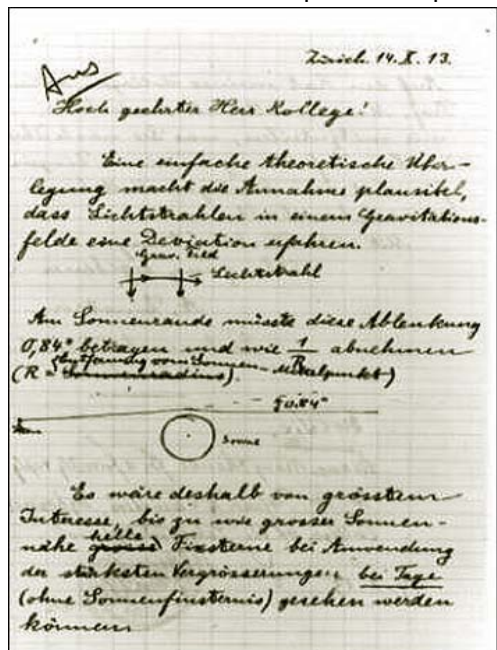 Zürich. 14. X. 13.
Hoch geehrter Herr Kollege!
Eine einfache theoretische Über-
legung macht die Annahme plausibel,
dass Lichtstrahlen in einem Gravitations-
felde eine Deviation erfahren.
Grav. Feld
Lichtstrahl
Am Sonnenrande müsste diese Ablenkung
0,84" betragen und wie 1/R abnehmen
(Entfernung vom Sonnen-Mittelpunkt)
(R = Sonnenradius).
0.84"
Sonne
Es wäre deshalb von grösstem
Interesse, bis zu wie grosser Sonnen-
helle
nähe grosse Fixsterne bei Anwendung
der stärksten Vergrösserungen bei Tage
(ohne Sonnenfinsternis) gesehen werden
können